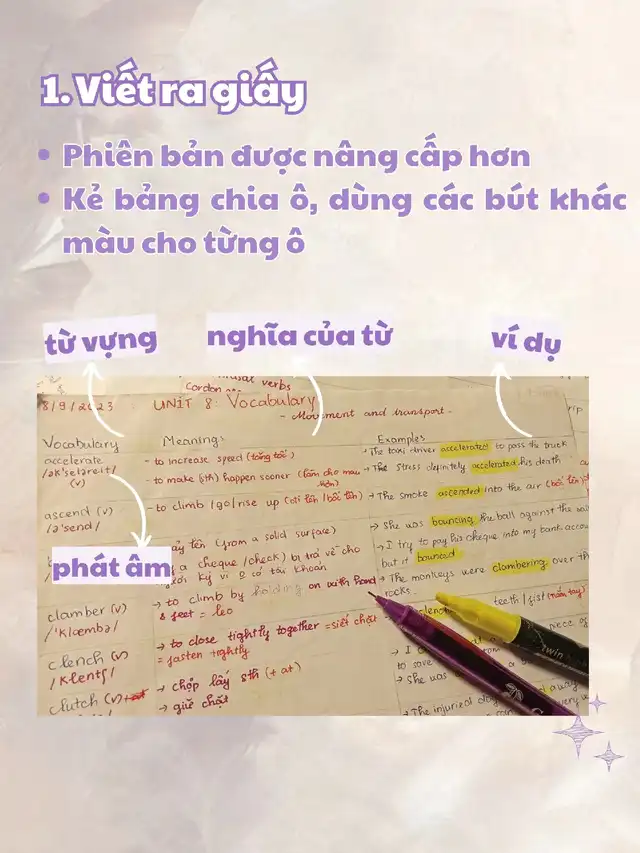 1. Viết ra giấy
Phiên bản được nâng cấp hơn
Kẻ bảng chia ô, dùng các bút khác
màu cho từng ô
từ vựng
nghĩa của từ
ví dụ
verbs
Cordon
8/9/2023 UNIT 8: Vocabulary
- Movement and transport.
Vocabulary Meanings Examples
accelerate
/ək'seləreit/
(v)
- to increase speed (tăng tốc)
- to make (sth) happen sooner (làm cho mau
hơn)
- The taxi driver accelerated to pass the truck
- The stress definitely accelerated his death
ascend (v)
/ə'send/
- to climb /go/rise up (đi lên/bốc lên)
→ The smoke ascended into the air (bốc lên)
nảy lên (from a solid surface)
a cheque/check) bị trả về cho
ký vì 0 có tài khoản
→ She was bouncing the ball against the
→ I try to pay his cheque into my bank
but it bounced
phát âm
clamber (v)
/'klæmbə/
→ to climb by holding on with hand
& feet = leo
→ The monkeys were clambering over
rocks.
clench (v)
/klentʃ/
→ to close tightly together = siết chặt
= fasten tightly
teeth / fist (nắm tay)
piece of
clutch (v)
→ chộp lấy sth (+ at)
→ giữ chặt
to save
→ She was
→ The injured
Twin